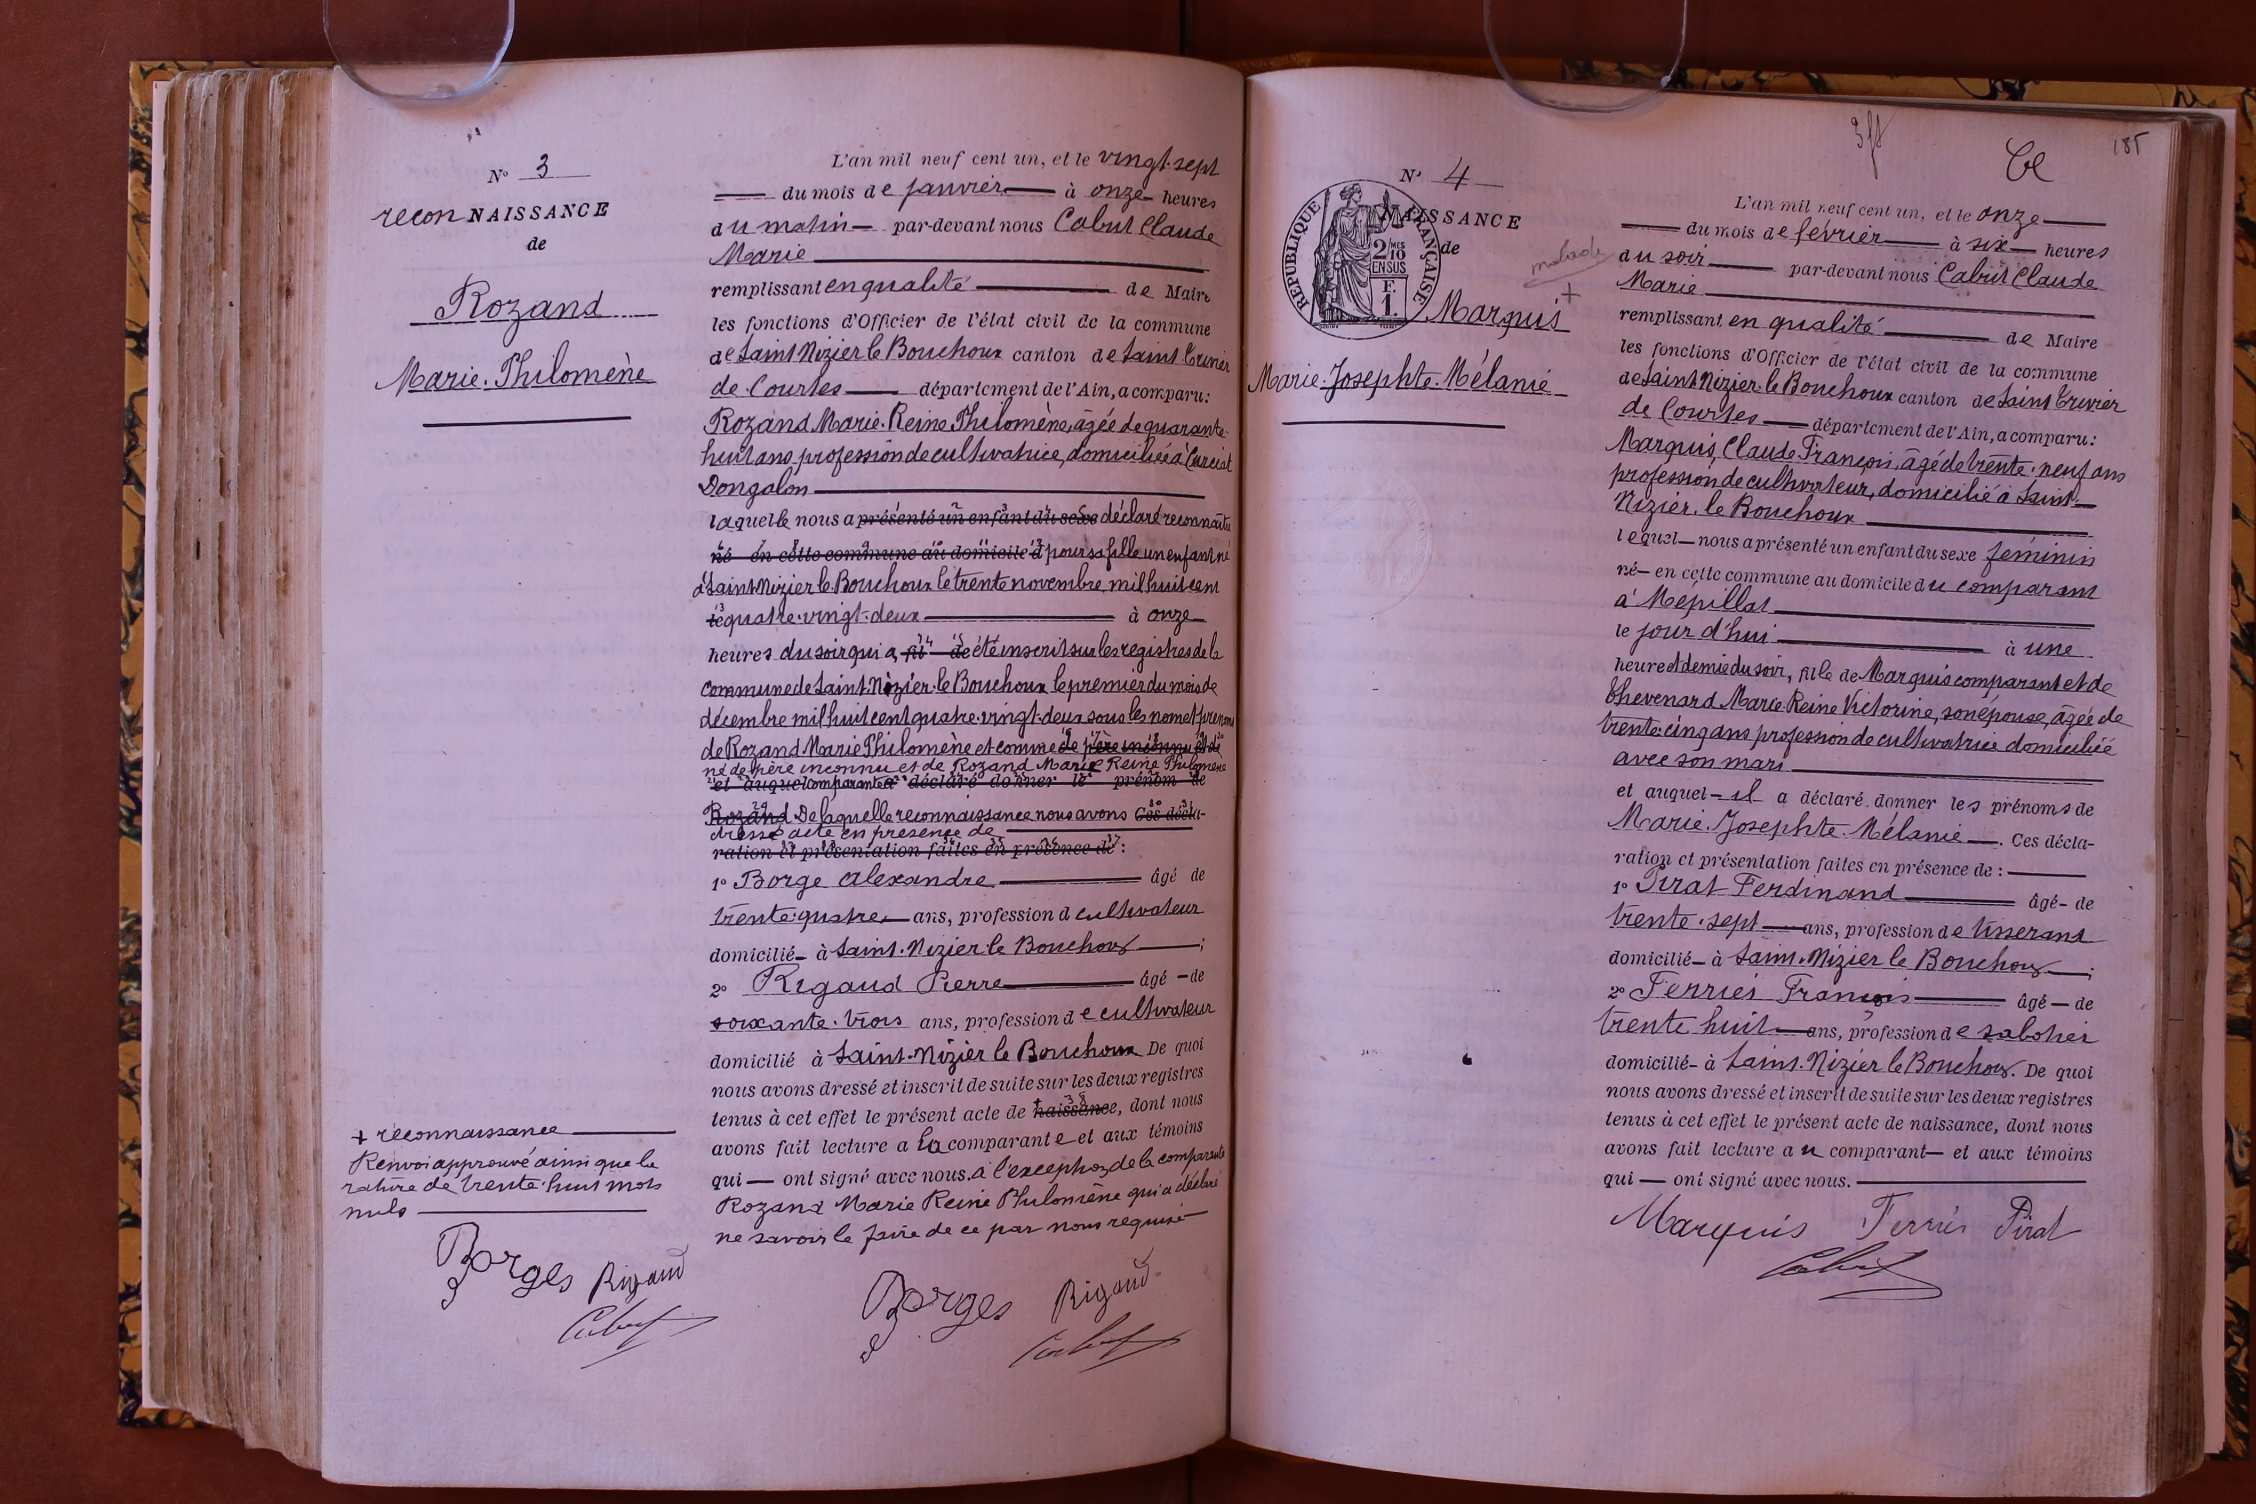 N° 3
reconNAISSANCE
de
Rozand
Marie-Philomène
L'an mil neuf cent un, et le vingt-sept
du mois de janvier à onze heures
du matin par-devant nous Cabut Claude
Marie
remplissant en qualité de Maire
les fonctions d'Officier de l'état civil de la commune
de Saint Nizier le Bouchoux canton de Saint Trivier
de Courtes département de l'Ain, a comparu:
Rozand Marie-Reine Philomène, âgée de quarante-
huit ans profession de cultivatrice, domiciliée à Curciat
Dongalon
laquelle nous a présenté un enfant du sexe déclaré reconnaître
né en cette commune au domicile d pour sa fille un enfant né
à Saint-Nizier le Bouchoux le trente novembre mil huit cent
le quatre-vingt-deux à onze
heures du soir qui a fil de été inscrit sur les registres de la
commune de Saint-Nizier-le Bouchoux le premier du mois de
décembre mil huit cent quatre-vingt-deux sous les nom et prénoms
de Rozand Marie Philomène et comme de père inconnu et de
né de père inconnu et de Rozand Marie Reine Philomène
et auquel comparante a déclaré donner le prénom de
Rozand De laquelle reconnaissance nous avons Ces décla-
dressé acte en présence de
ration et présentation faites en présence de :
1° Borge Alexandre âgé de
trente-quatre ans, profession d cultivateur
domicilié à Saint-Nizier le Bouchoux ;
2° Rigaud Pierre âgé de
soixante-trois ans, profession de cultivateur
domicilié à Saint-Nizier le Bouchoux De quoi
nous avons dressé et inscrit de suite sur les deux registres
tenus à cet effet le présent acte de + naissance, dont nous
avons fait lecture a la comparante et aux témoins
qui ont signé avec nous. à l'exception de la comparante
Rozand Marie Reine Philomène qui a déclaré
ne savoir le faire de ce par nous requise
Borges Rigaud
Cabut
+ reconnaissance
Renvoi approuvé ainsi que la
rature de trente-huit mots
nuls
Borges Rigaud
Cabut
185
N° 4
NAISSANCE
de
REPUBLIQUE FRANÇAISE
2/10 MES
EN SUS
F.
1.
malade
+
Marquis
Marie-Josephte-Mélanie
L'an mil neuf cent un, et le onze
du mois de février à six heures
du soir par-devant nous Cabut Claude
Marie
remplissant en qualité de Maire
les fonctions d'Officier de l'état civil de la commune
de Saint-Nizier-le Bouchoux canton de Saint Trivier
de Courtes département de l'Ain, a comparu:
Marquis, Claude François, âgé de trente-neuf ans
profession de cultivateur, domicilié à Saint-
Nizier-le Bouchoux
lequel nous a présenté un enfant du sexe féminin
né en cette commune au domicile du comparant
à Mépillat
le jour d'hui à une
heure et demie du soir, fille de Marquis comparant et de
Thevenard Marie-Reine Victorine, son épouse, âgée de
trente-cinq ans profession de cultivatrice domiciliée
avec son mari
et auquel il a déclaré donner les prénoms de
Marie-Josephte-Mélanie. Ces décla-
ration et présentation faites en présence de :
1° Pirat Ferdinand âgé de
trente-sept ans, profession de tisserand
domicilié à Saint-Nizier le Bouchoux ;
2° Ferriés François âgé de
trente huit ans, profession de sabotier
domicilié à Saint-Nizier le Bouchoux. De quoi
nous avons dressé et inscrit de suite sur les deux registres
tenus à cet effet le présent acte de naissance, dont nous
avons fait lecture au comparant et aux témoins
qui ont signé avec nous.
Marquis Ferriés Pirat
Cabut